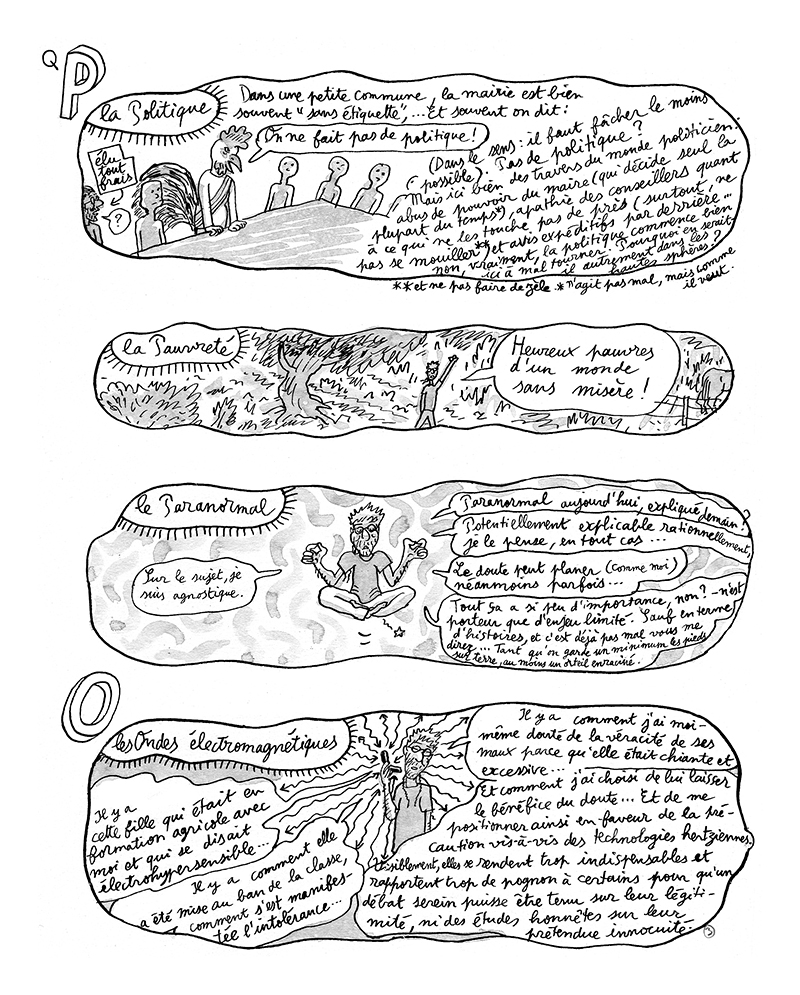 Q
P
la Politique
Dans une petite commune, la mairie est bien
souvent "sans étiquette",... Et souvent on dit :
On ne fait pas de politique !
élu
tout
frais
?
(Dans le sens : il faut fâcher le moins
possible) : Pas de politique ?
Mais ici bien des travers du monde politicien :
abus de pouvoir du maire (qui décide seul la
plupart du temps*), apathie des conseillers quant
à ce qui ne les touche pas de près (surtout, ne
pas se mouiller**) et avis expéditifs par derrière...
non, vraiment, la politique commence bien
ici à mal tourner. Pourquoi en serait
il autrement dans les
hautes sphères ?
** et ne pas faire de zèle. * n'agit pas mal, mais comme
il veut.
la Pauvreté
Heureux pauvres
d'un monde
sans misère !
le Paranormal
Sur le sujet, je
suis agnostique.
Paranormal aujourd'hui, expliqué demain ?
Potentiellement explicable rationnellement,
je le pense, en tout cas ...
Le doute peut planer (comme moi)
néanmoins parfois...
Tout ça a si peu d'importance, non ? - n'est
porteur que d'enjeu limité. Sauf en terme
d'histoires, et c'est déjà pas mal vous me
direz... Tant qu'on garde un minimum les pieds
sur terre, au moins un orteil enraciné.
O
les Ondes électromagnétiques
Il y a
cette fille qui était en
formation agricole avec
moi et qui se disait
électrohypersensible...
Il y a comment elle
a été mise au ban de la classe,
comment s'est manifes-
tée l'intolérance...
Il y a comment j'ai moi-
même douté de la véracité de ses
maux parce qu'elle était chiante et
excessive...
Et comment j'ai choisi de lui laisser
le bénéfice du doute... Et de me
positionner ainsi en faveur de la pré-
caution vis-à-vis des technologies hertziennes.
Visiblement, elles se rendent trop indispensables et
rapportent trop de pognon à certains pour qu'un
débat serein puisse être tenu sur leur légiti-
mité, ni des études honnêtes sur leur
prétendue innocuité.
3